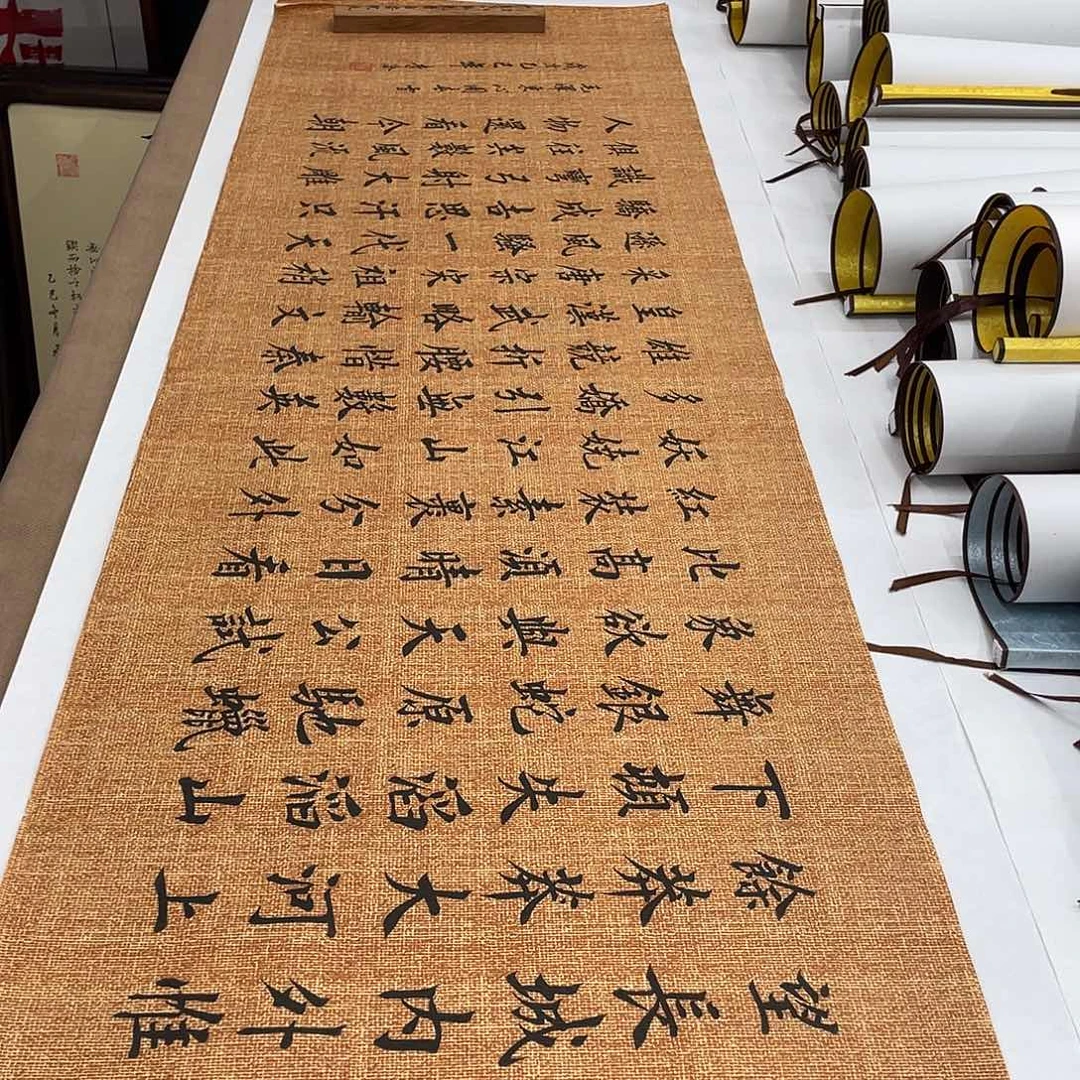 望長城内外惟
餘莽莽大河上
下頓失滔滔山
舞銀蛇原馳蠟
象欲與天公試
比高須晴日看
紅裝素裹分外
妖嬈江山如此
多嬌引無數英
雄競折腰惜秦
皇漢武略輸文
采唐宗宋祖稍
遜風騷一代天
驕成吉思汗只
識彎弓射大雕
俱往矣數風流
人物還看今朝
毛澤東沁園春雪
歲在乙巳年
乙巳年夏